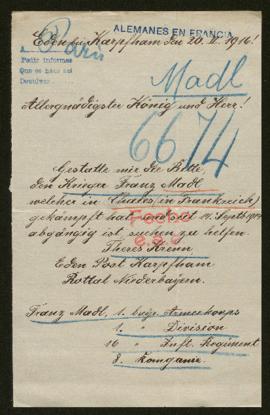 ALEMANES EN FRANCIA
Eden bei Karpfham den 20. II. 1916!
A Paris
Pedir informes
Que es hace así
Devolver
Madl
Allergnädigster König und Herr!
6674
Gestatte mir die Bitte,
den Krieger Franz Madl
welcher in (in Frankreich)
gekämpft hat seit 14. Septb 1914
Fecho
abgängig ist suchen zu helfen.
Theres
Eden Post Karpfham
Rottal Niederbayern.
Franz Madl, 1. bayr. Armeekorps
1. " Division
16 " Inft. Regiment
8. Kompanie.